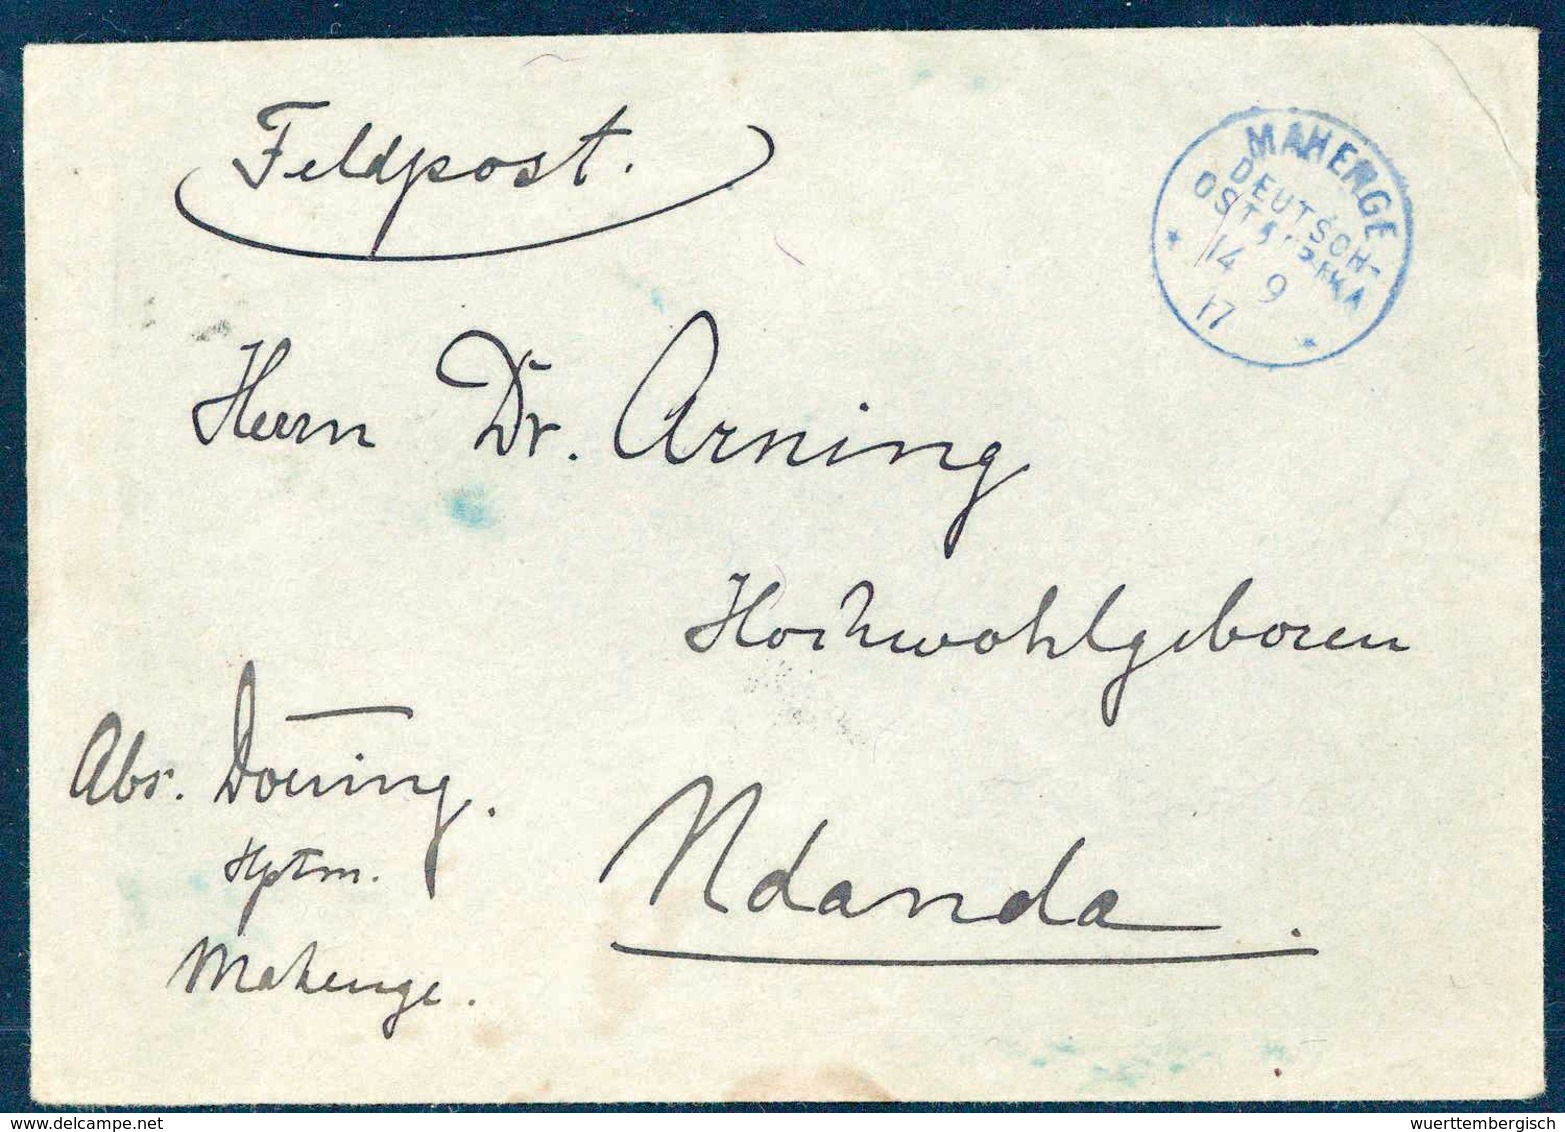 Feldpost.
MAHENGE
DEUTSCH-
OSTAFRIKA
14 9
17
Herrn Dr. Arning
Hochwohlgeboren
Abs. Döring.
Hptm.
Mahenge.
Ndanda.
delcampe.net
wuerttembergisch